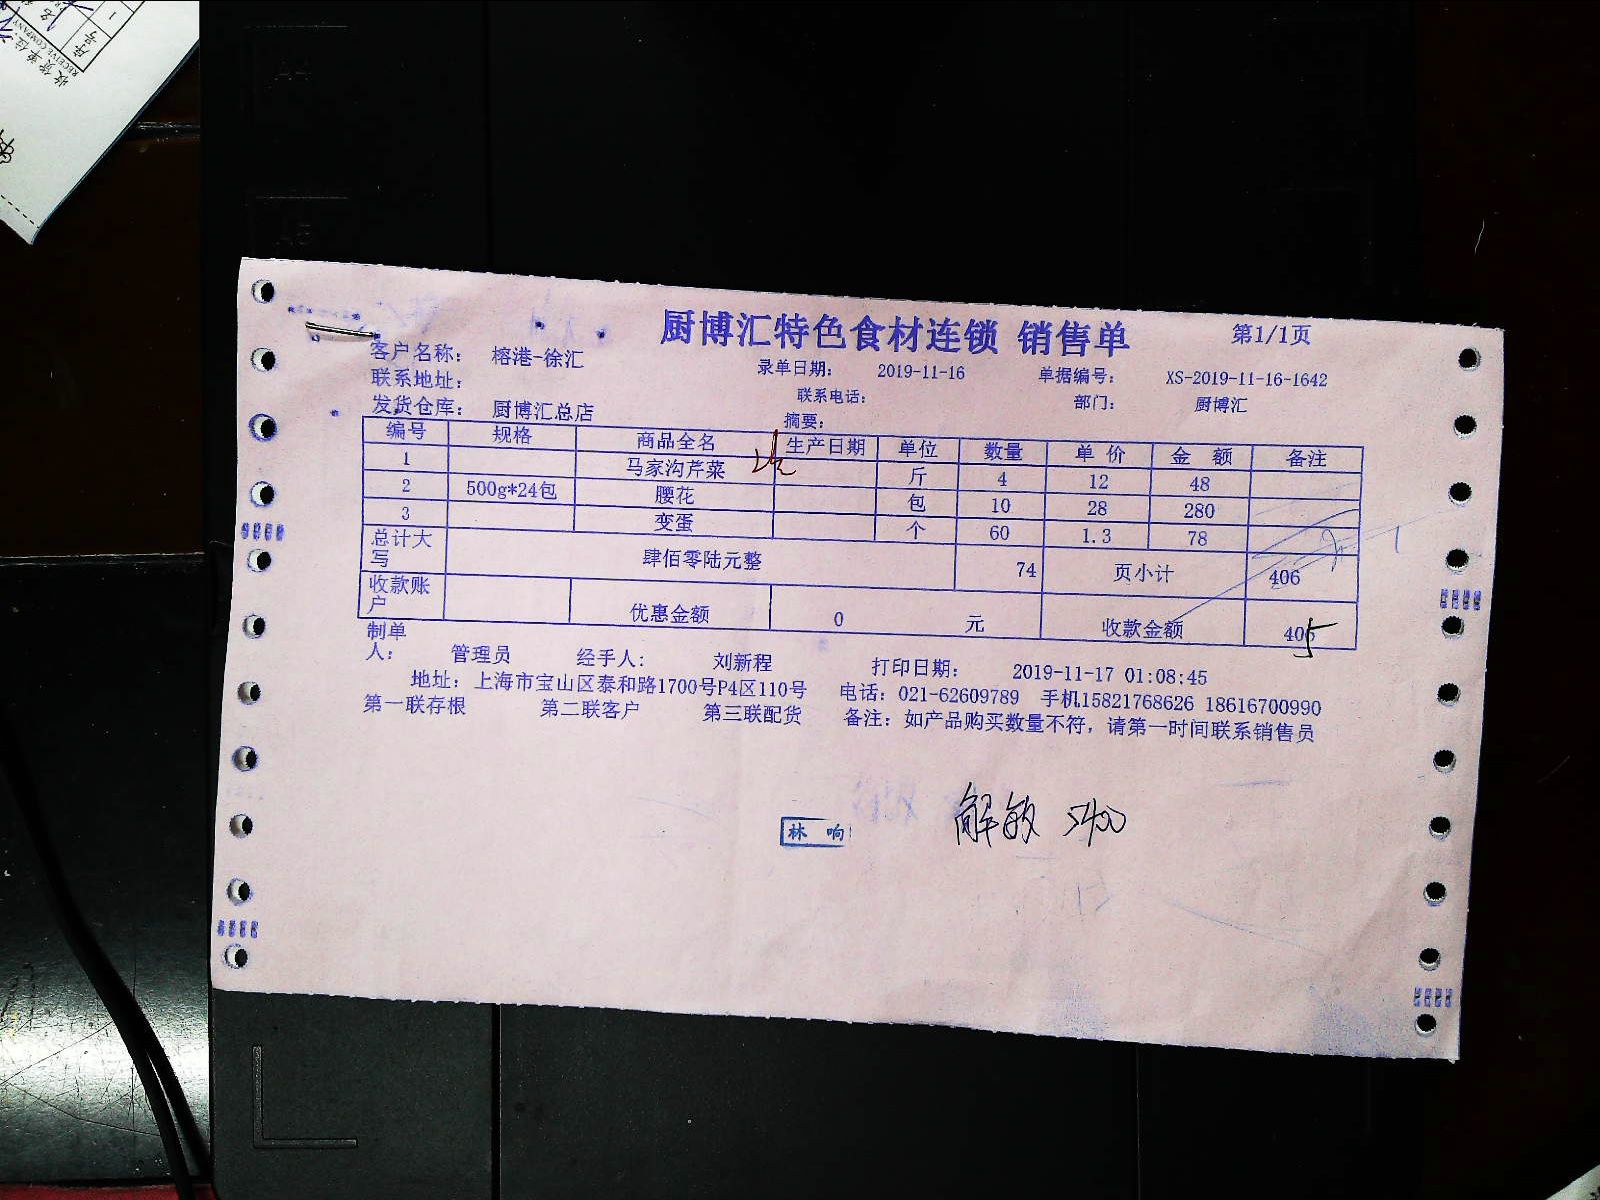 厨博汇特色食材连锁 销售单 第1/1页
客户名称: 榕港-徐汇 录单日期: 2019-11-16 单据编号: XS-2019-11-16-1642
联系地址: 联系电话: 部门: 厨博汇
发货仓库: 厨博汇总店 摘要:
编号 规格 商品全名 生产日期 单位 数量 单价 金额 备注
1 马家沟芹菜 斤 4 12 48
2 500g*24包 腰花 包 10 28 280
3 变蛋 个 60 1.3 78
总计大写 肆佰零陆元整 74 页小计 406
收款账户 优惠金额 0 元 收款金额 405
制单人: 管理员 经手人: 刘新程 打印日期: 2019-11-17 01:08:45
地址: 上海市宝山区泰和路1700号P4区110号 电话: 021-62609789 手机15821768626 18616700990
第一联存根 第二联客户 第三联配货 备注: 如产品购买数量不符, 请第一时间联系销售员
林响
收货单位:
RECEIVE COMPANY
序号
1